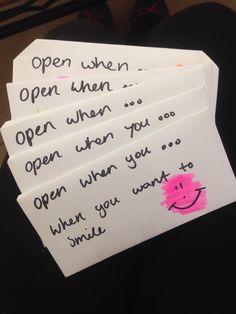 open when ...
open when ...
open when ...
open when you ...
open when you ...
when you want to
smile